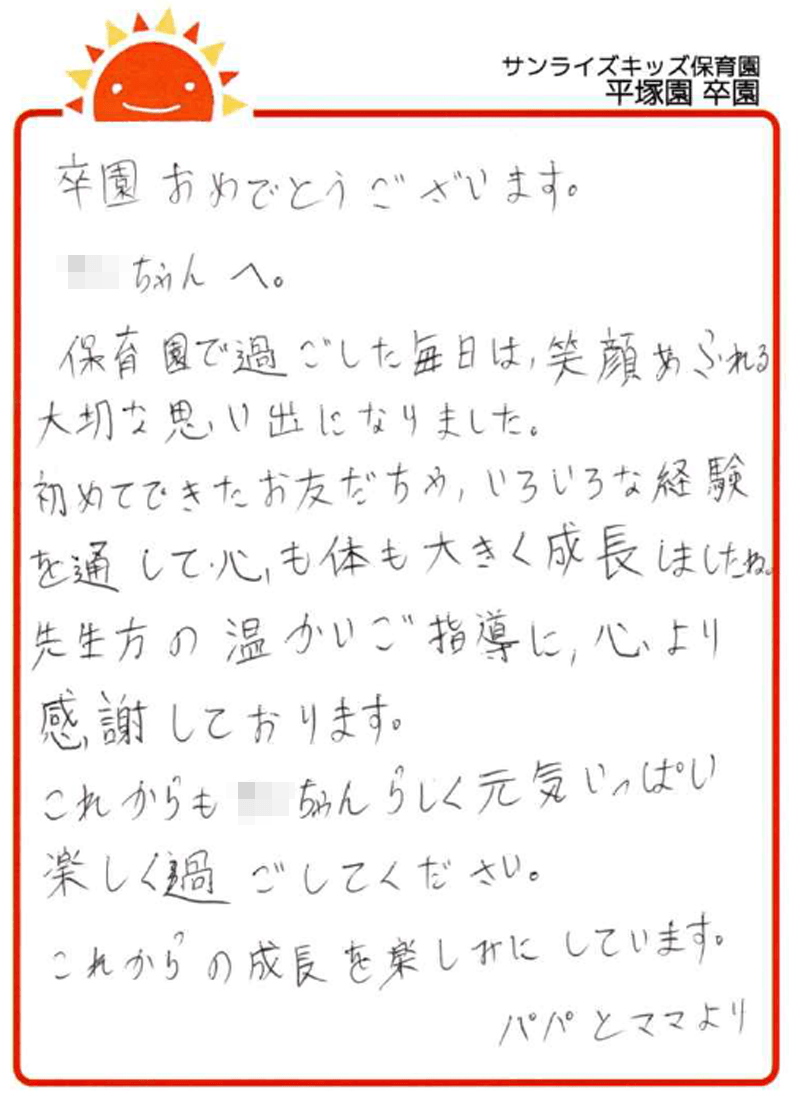 サンライズキッズ保育園
平塚園 卒園
卒園 おめでとうございます。
ちゃん へ。
保育園で過ごした毎日は,笑顔あふれる
大切な思い出になりました。
初めてできたお友だちや,いろいろな経験
を通して心も体も大きく成長しましたね。
先生方の温かいご指導に,心より
感謝しております。
これからも ちゃんらしく元気いっぱい
楽しく過ごしてください。
これからの成長を楽しみにしています。
パパとママより